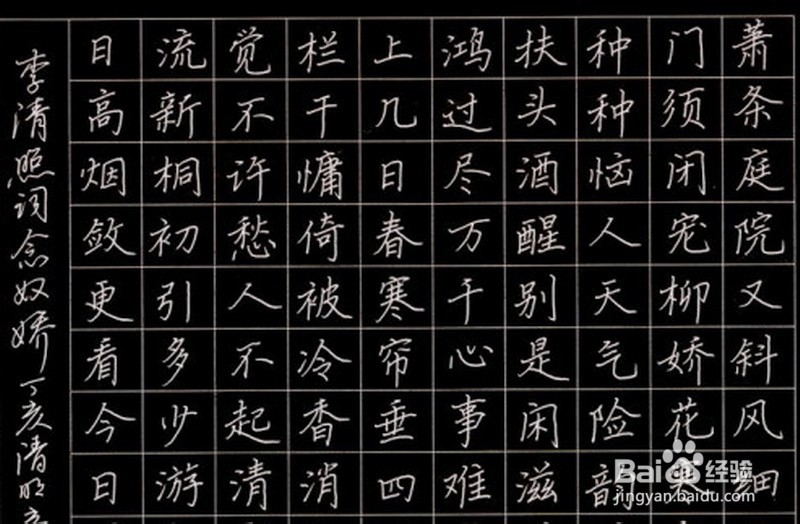 萧条庭院又斜风细
门须闭宠柳娇花寒
种种恼人天气险韵
扶头酒醒别是闲滋
鸿过尽万千心事难
上几日春寒帘垂四
栏干慵倚被冷香消
觉不许愁人不起清
流新桐初引多少游
日高烟敛更看今日
李清照词念奴娇丁亥清明
Baidu经验
jingyan.baidu.com